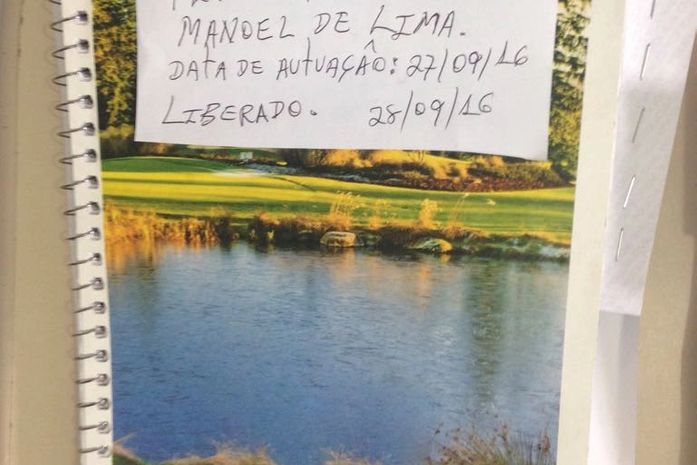 MANOEL DE LIMA.
DATA DE AUTUAÇÂO: 27/09/16
LIBERADO. 28/09/16